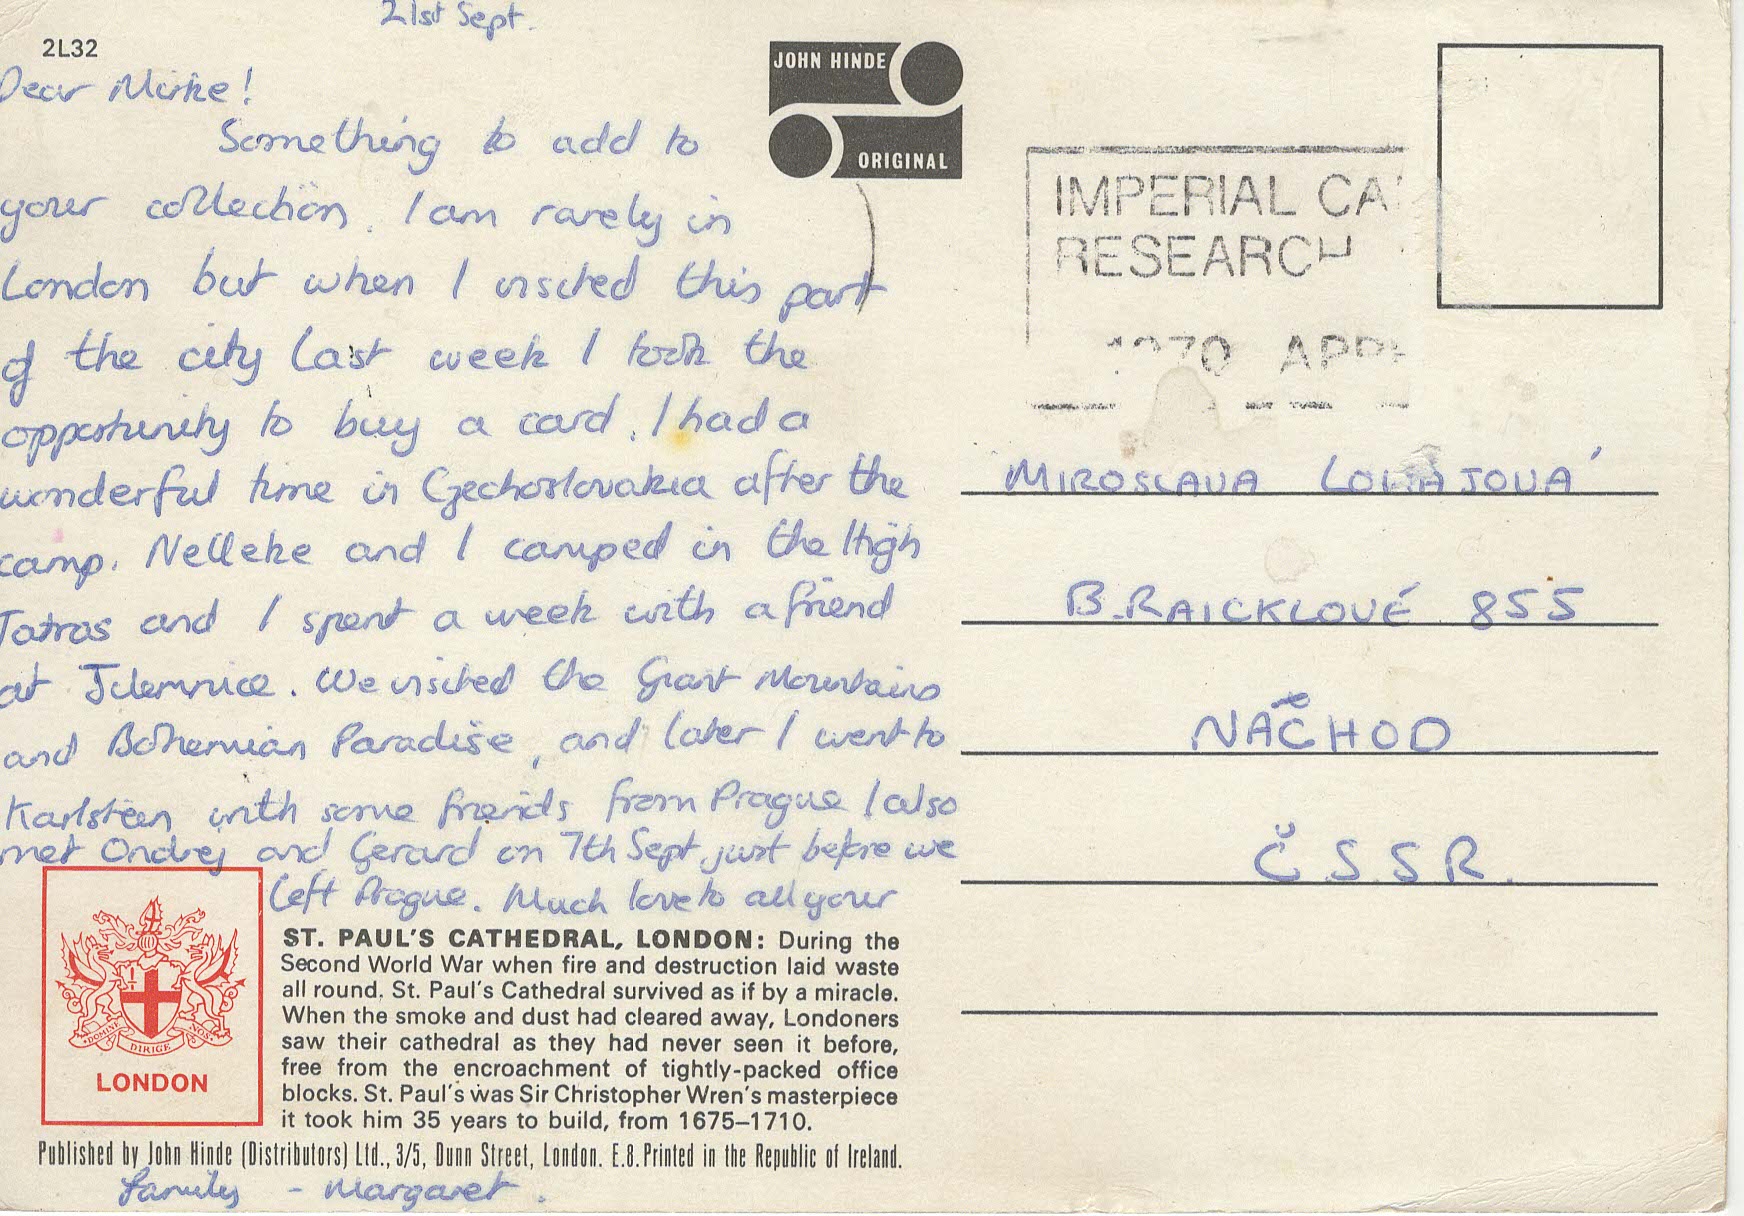 21st Sept.
2L32
Dear Mirke!
Something to add to
your collection. I am rarely in
London but when I visited this part
of the city last week I took the
opportunity to buy a card. I had a
wonderful time in Czechoslovakia after the
camp. Nelleke and I camped in the High
Tatras and I spent a week with a friend
at Jilemnice. We visited the Giant Mountains
and Bohemian Paradise, and later I went to
Karlstein with some friends from Prague I also
met Ondrej and Gerard on 7th Sept. just before we
left Prague. Much love to all your
family - Margaret.
JOHN HINDE
ORIGINAL
IMPERIAL CA
RESEARCH
1970 APPE
MIROSLAVA
B. RAICKLOVÉ 855
NÁCHOD
Č.S.S.R.
DOMINE DIRIGE NOS
LONDON
ST. PAUL'S CATHEDRAL, LONDON: During the
Second World War when fire and destruction laid waste
all round, St. Paul's Cathedral survived as if by a miracle.
When the smoke and dust had cleared away, Londoners
saw their cathedral as they had never seen it before,
free from the encroachment of tightly-packed office
blocks. St. Paul's was Sir Christopher Wren's masterpiece
it took him 35 years to build, from 1675–1710.
Published by John Hinde (Distributors) Ltd., 3/5, Dunn Street, London. E.8. Printed in the Republic of Ireland.